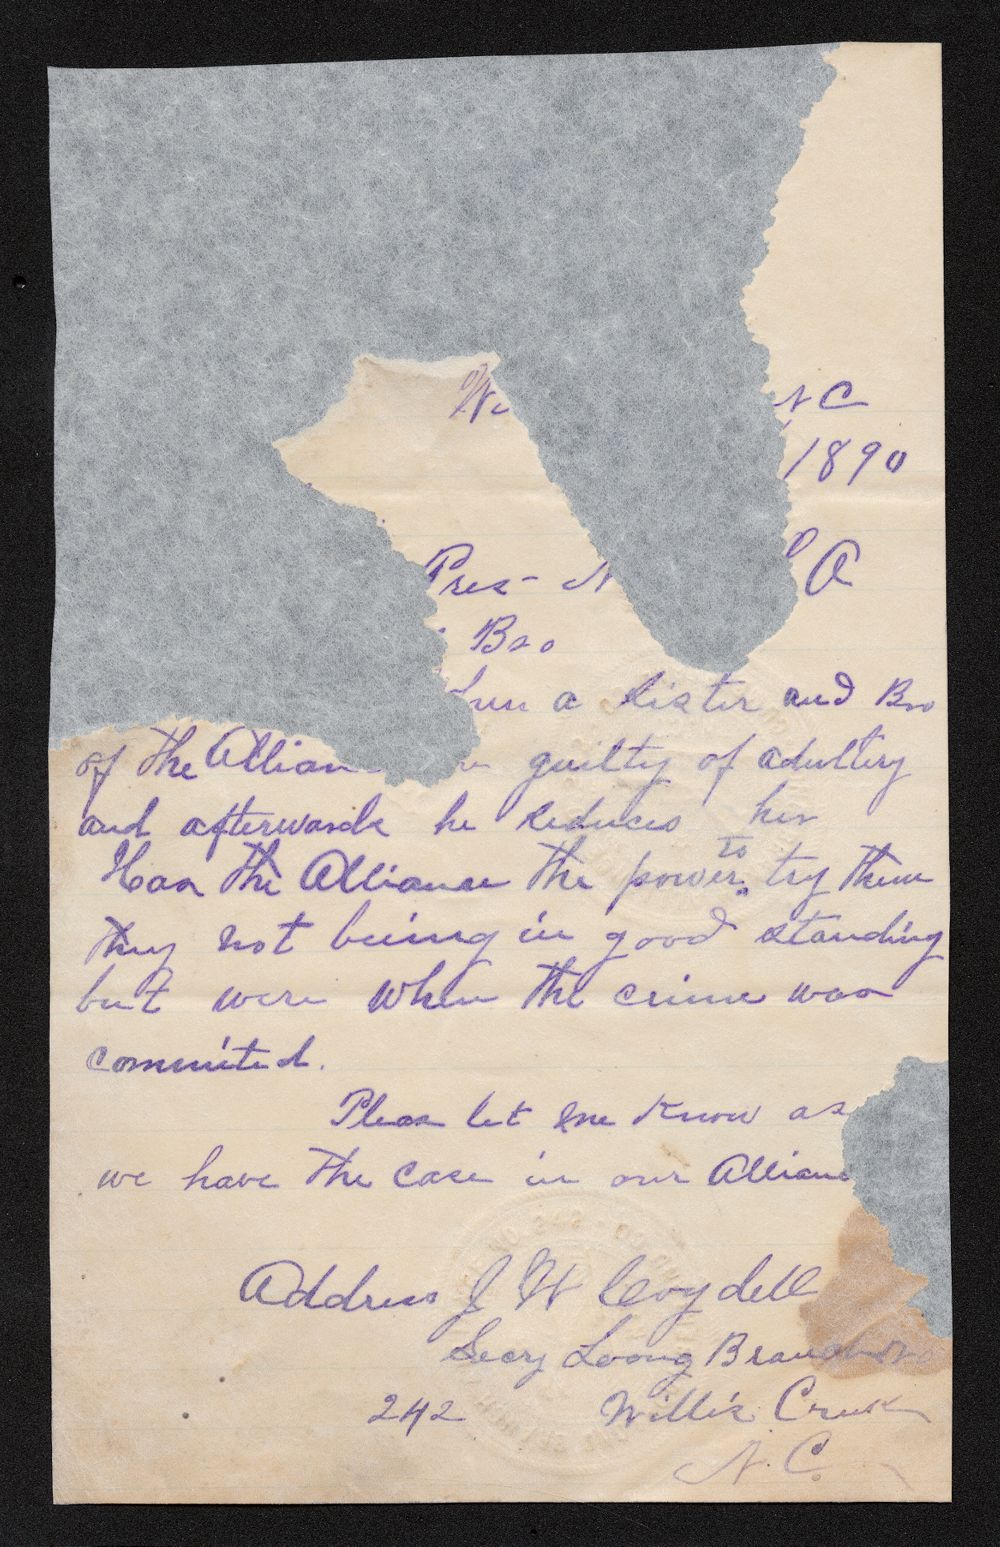 Wi N C
/1890
Pres- N A
Bro
a Sister and Bro
of the Allian guilty of adultery
and afterwards he seduces her
Has the Alliance the power to try them
they not being in good standing
but were when the crime was
commited.
Pleas let me know as
we have the case in our Allianc
Address J W
Secy Loong Branch No
242 Willis Creek
N. C.